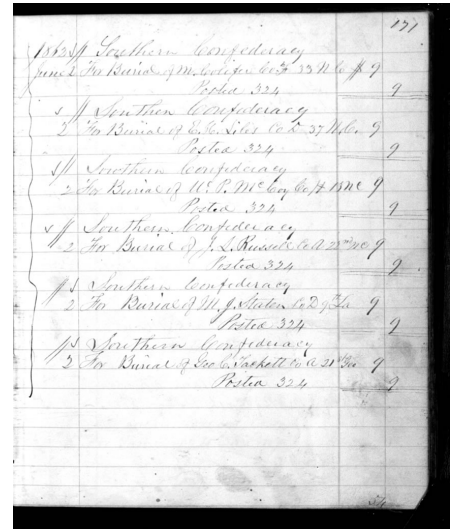 171
1863 Southern Confederacy
June 2 For Burial of M. Co F 33 N C 9
Posted 324 9
Southern Confederacy
2 For Burial of E. C. Liles Co D 37 N.C. 9
Posted 324 9
Southern Confederacy
2 For Burial of W. P. McCoy Co H 18 NC 9
Posted 324 9
Southern Confederacy
2 For Burial of J. L. Russell Co A 28th NC 9
Posted 324 9
Southern Confederacy
2 For Burial of M. J. Co D 9th La 9
Posted 324 9
Southern Confederacy
2 For Burial of Geo C. Tackett Co A 21st 9
Posted 324 9
54